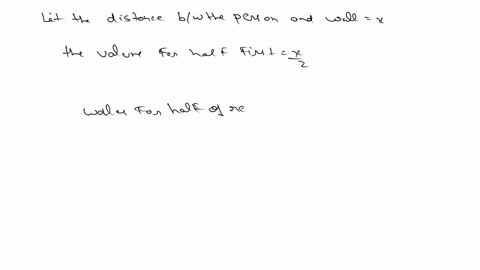 Let the distance b/w the person and wall = x
the value for half first = x/2
for half of re